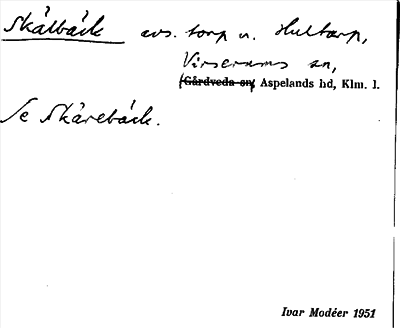 Skålbäck avs. torp u. Hultarp,
Virserums sn,
(Gårdveda sn) Aspelands hd, Klm. l.
Se Skärebäck.
Ivar Modéer 1951